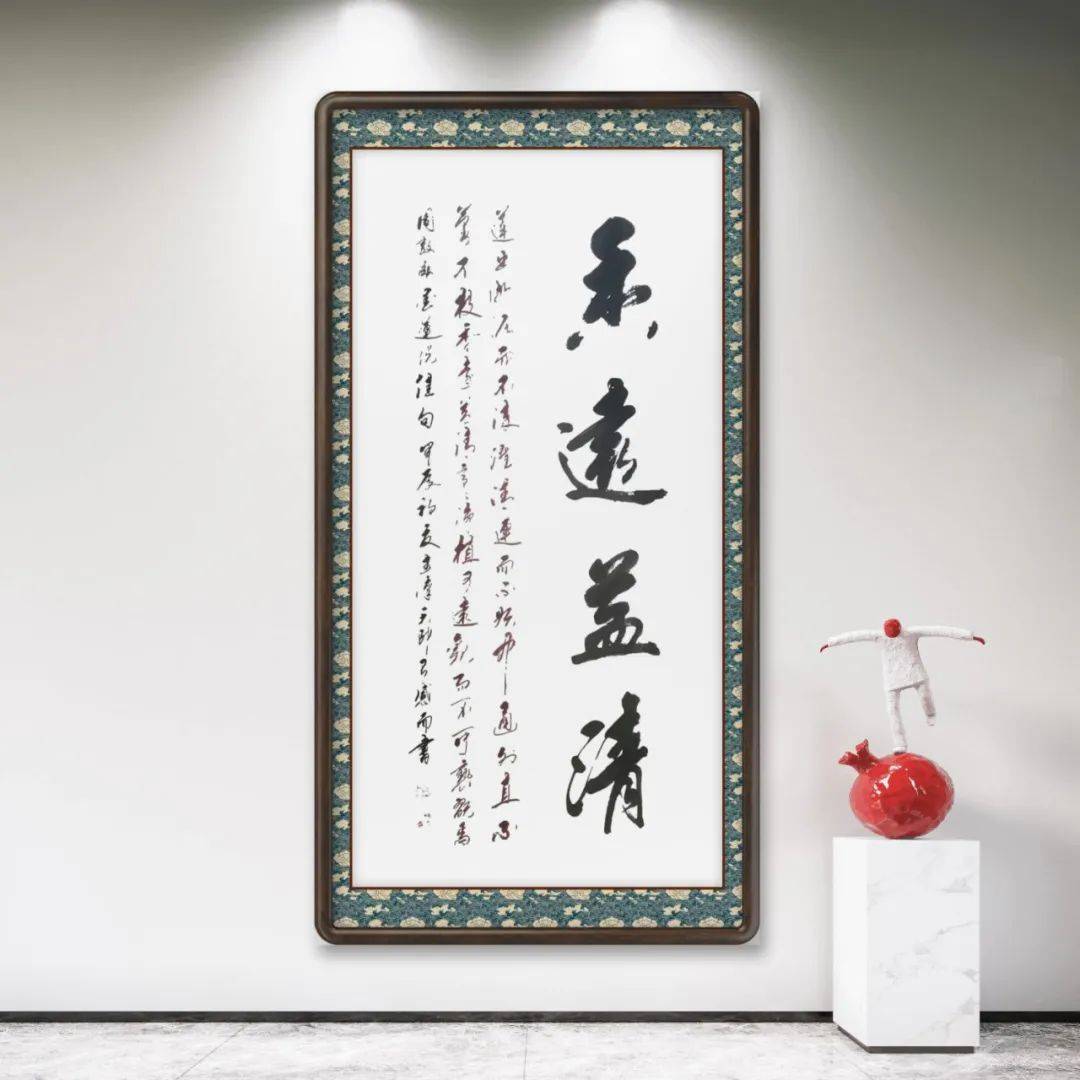 香遠益清
蓮出淤泥而不染濯清漣而不妖中通外直不
蔓不枝香遠益清亭亭淨植可遠觀而不可褻翫焉
周敦頤愛蓮说佳句甲辰初夏有感而書